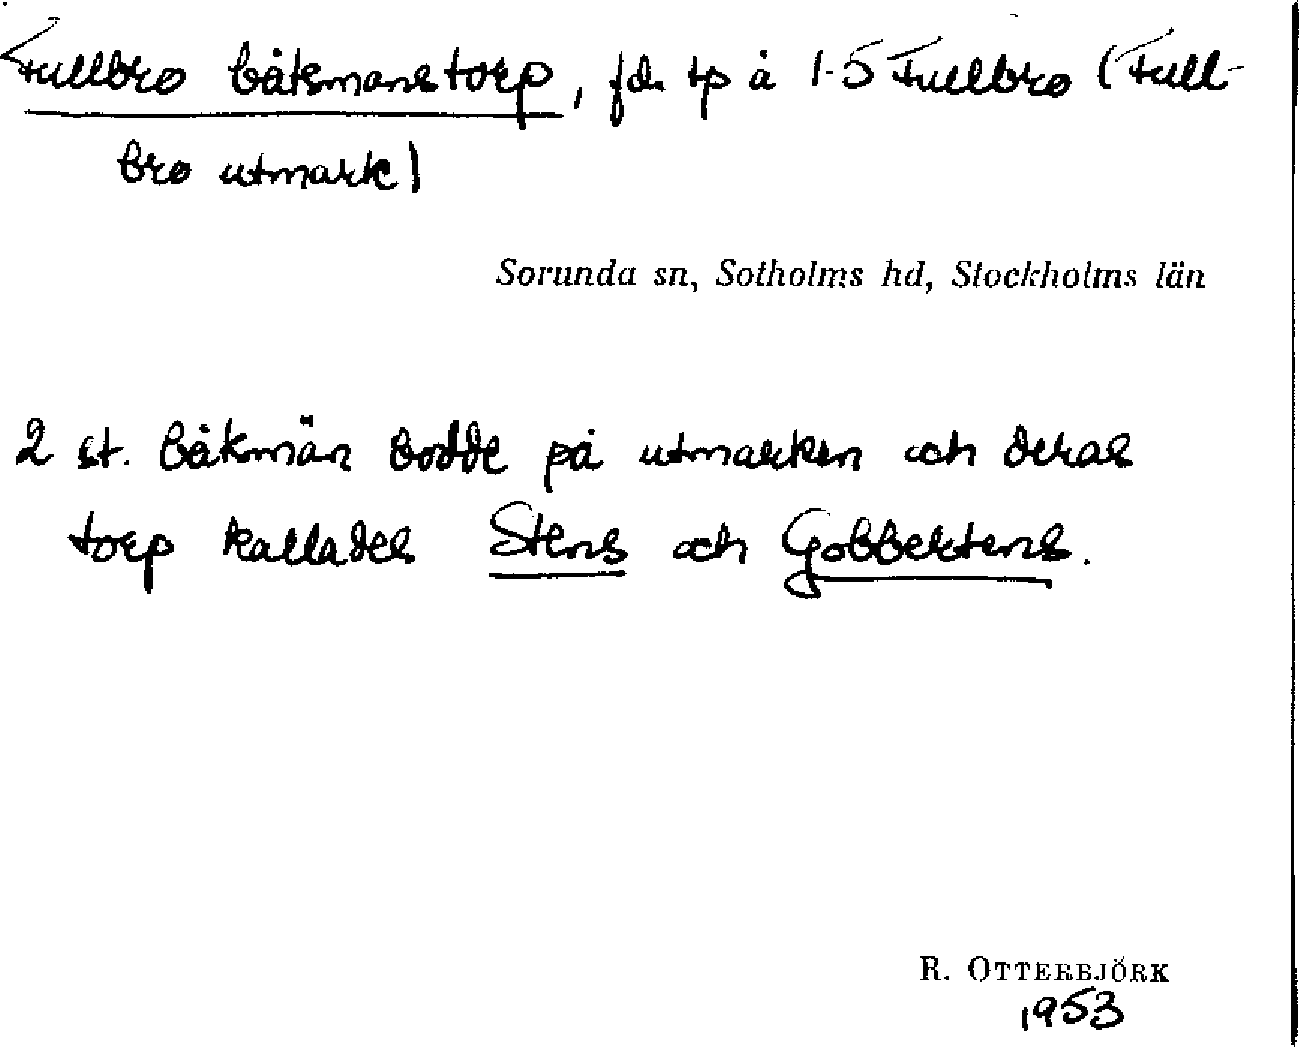 Fullbro båtsmanstorp, fd. tp å 1-5 Fullbro (Full-
bro utmark)
Sorunda sn, Sotholms hd, Stockholms län
2 st. båtsmän bodde på utmarken och deras
torp kallades Stens och Gobbektens.
R. OTTERBJÖRK
1953